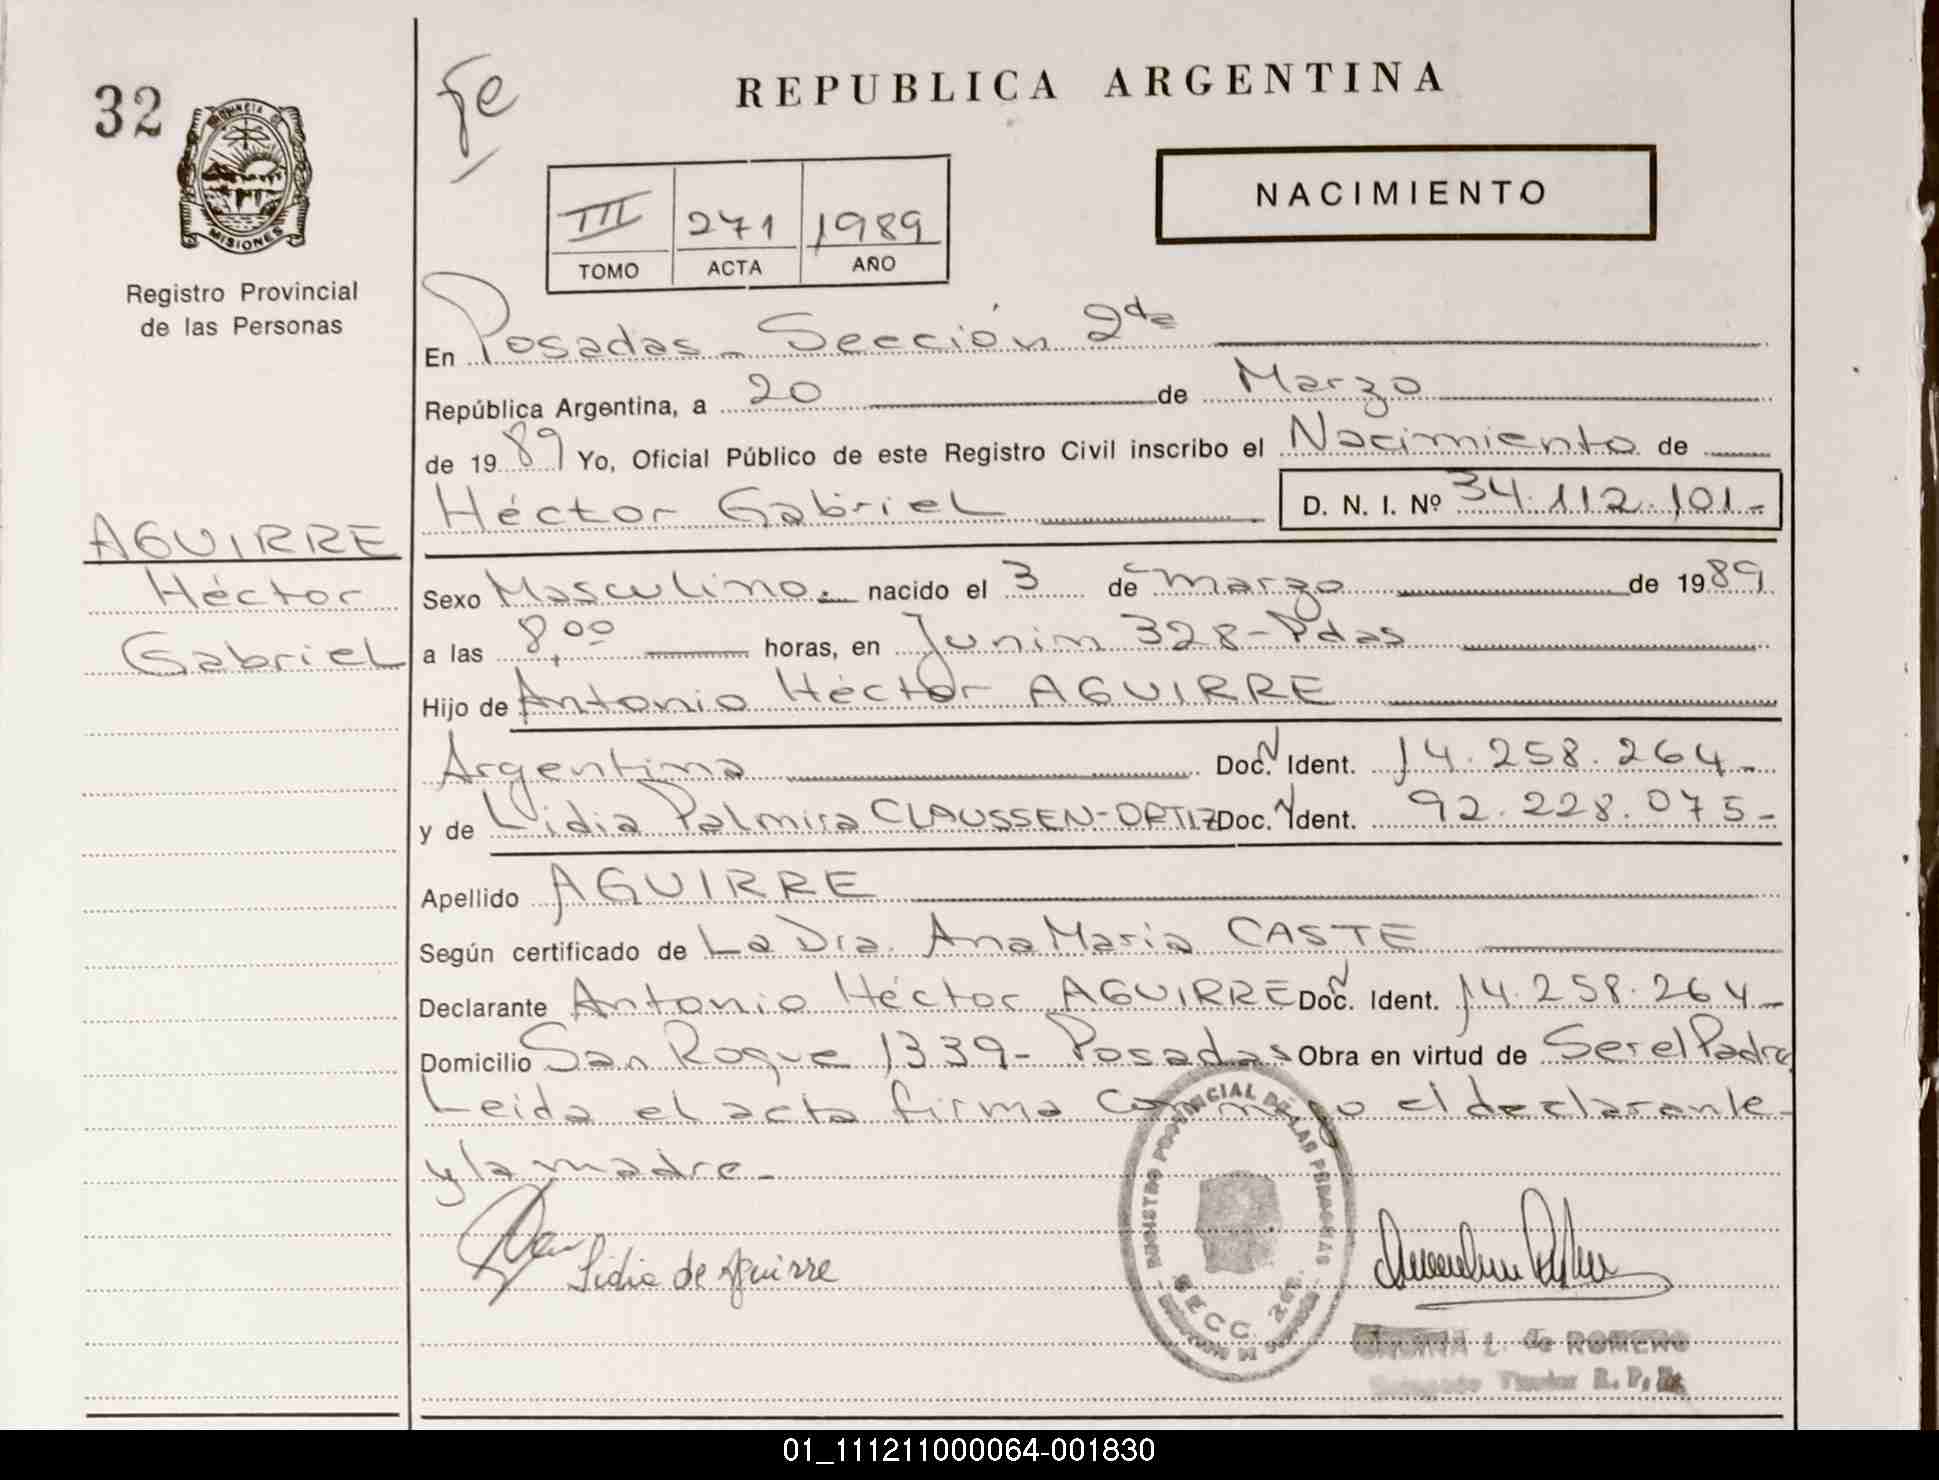 32
Fe
REPUBLICA ARGENTINA
PROVINCIA DE
MISIONES
Registro Provincial
de las Personas
NACIMIENTO
III 271 1989
TOMO ACTA AÑO
En Posadas - Sección 2da
República Argentina, a 20 de Marzo
de 1989 Yo, Oficial Público de este Registro Civil inscribo el Nacimiento de
Héctor Gabriel D. N. I. Nº 34.112.101.-
AGUIRRE
Héctor
Gabriel
Sexo Masculino. nacido el 3 de marzo de 1989
a las 8,00 horas, en Junin 328-Pdas
Hijo de Antonio Héctor AGUIRRE
Argentina Doc. N Ident. 14.258.264-
y de Lidia Palmira CLAUSSEN-ORTIZ Doc. N Ident. 92.228.075-
Apellido AGUIRRE
Según certificado de La Dra. Ana Maria CASTE
Declarante Antonio Héctor AGUIRRE Doc. N Ident. 14.258.264-
Domicilio San Roque 1339- Posadas Obra en virtud de Ser el Padre
Leida el acta firma conmigo el declarante
y la madre.-
Lidia de Aguirre
REGISTRO PROVINCIAL DE LAS PERSONAS
SECC. 2da.
L. de ROMERO
Titular R. P. P.
01_111211000064-001830